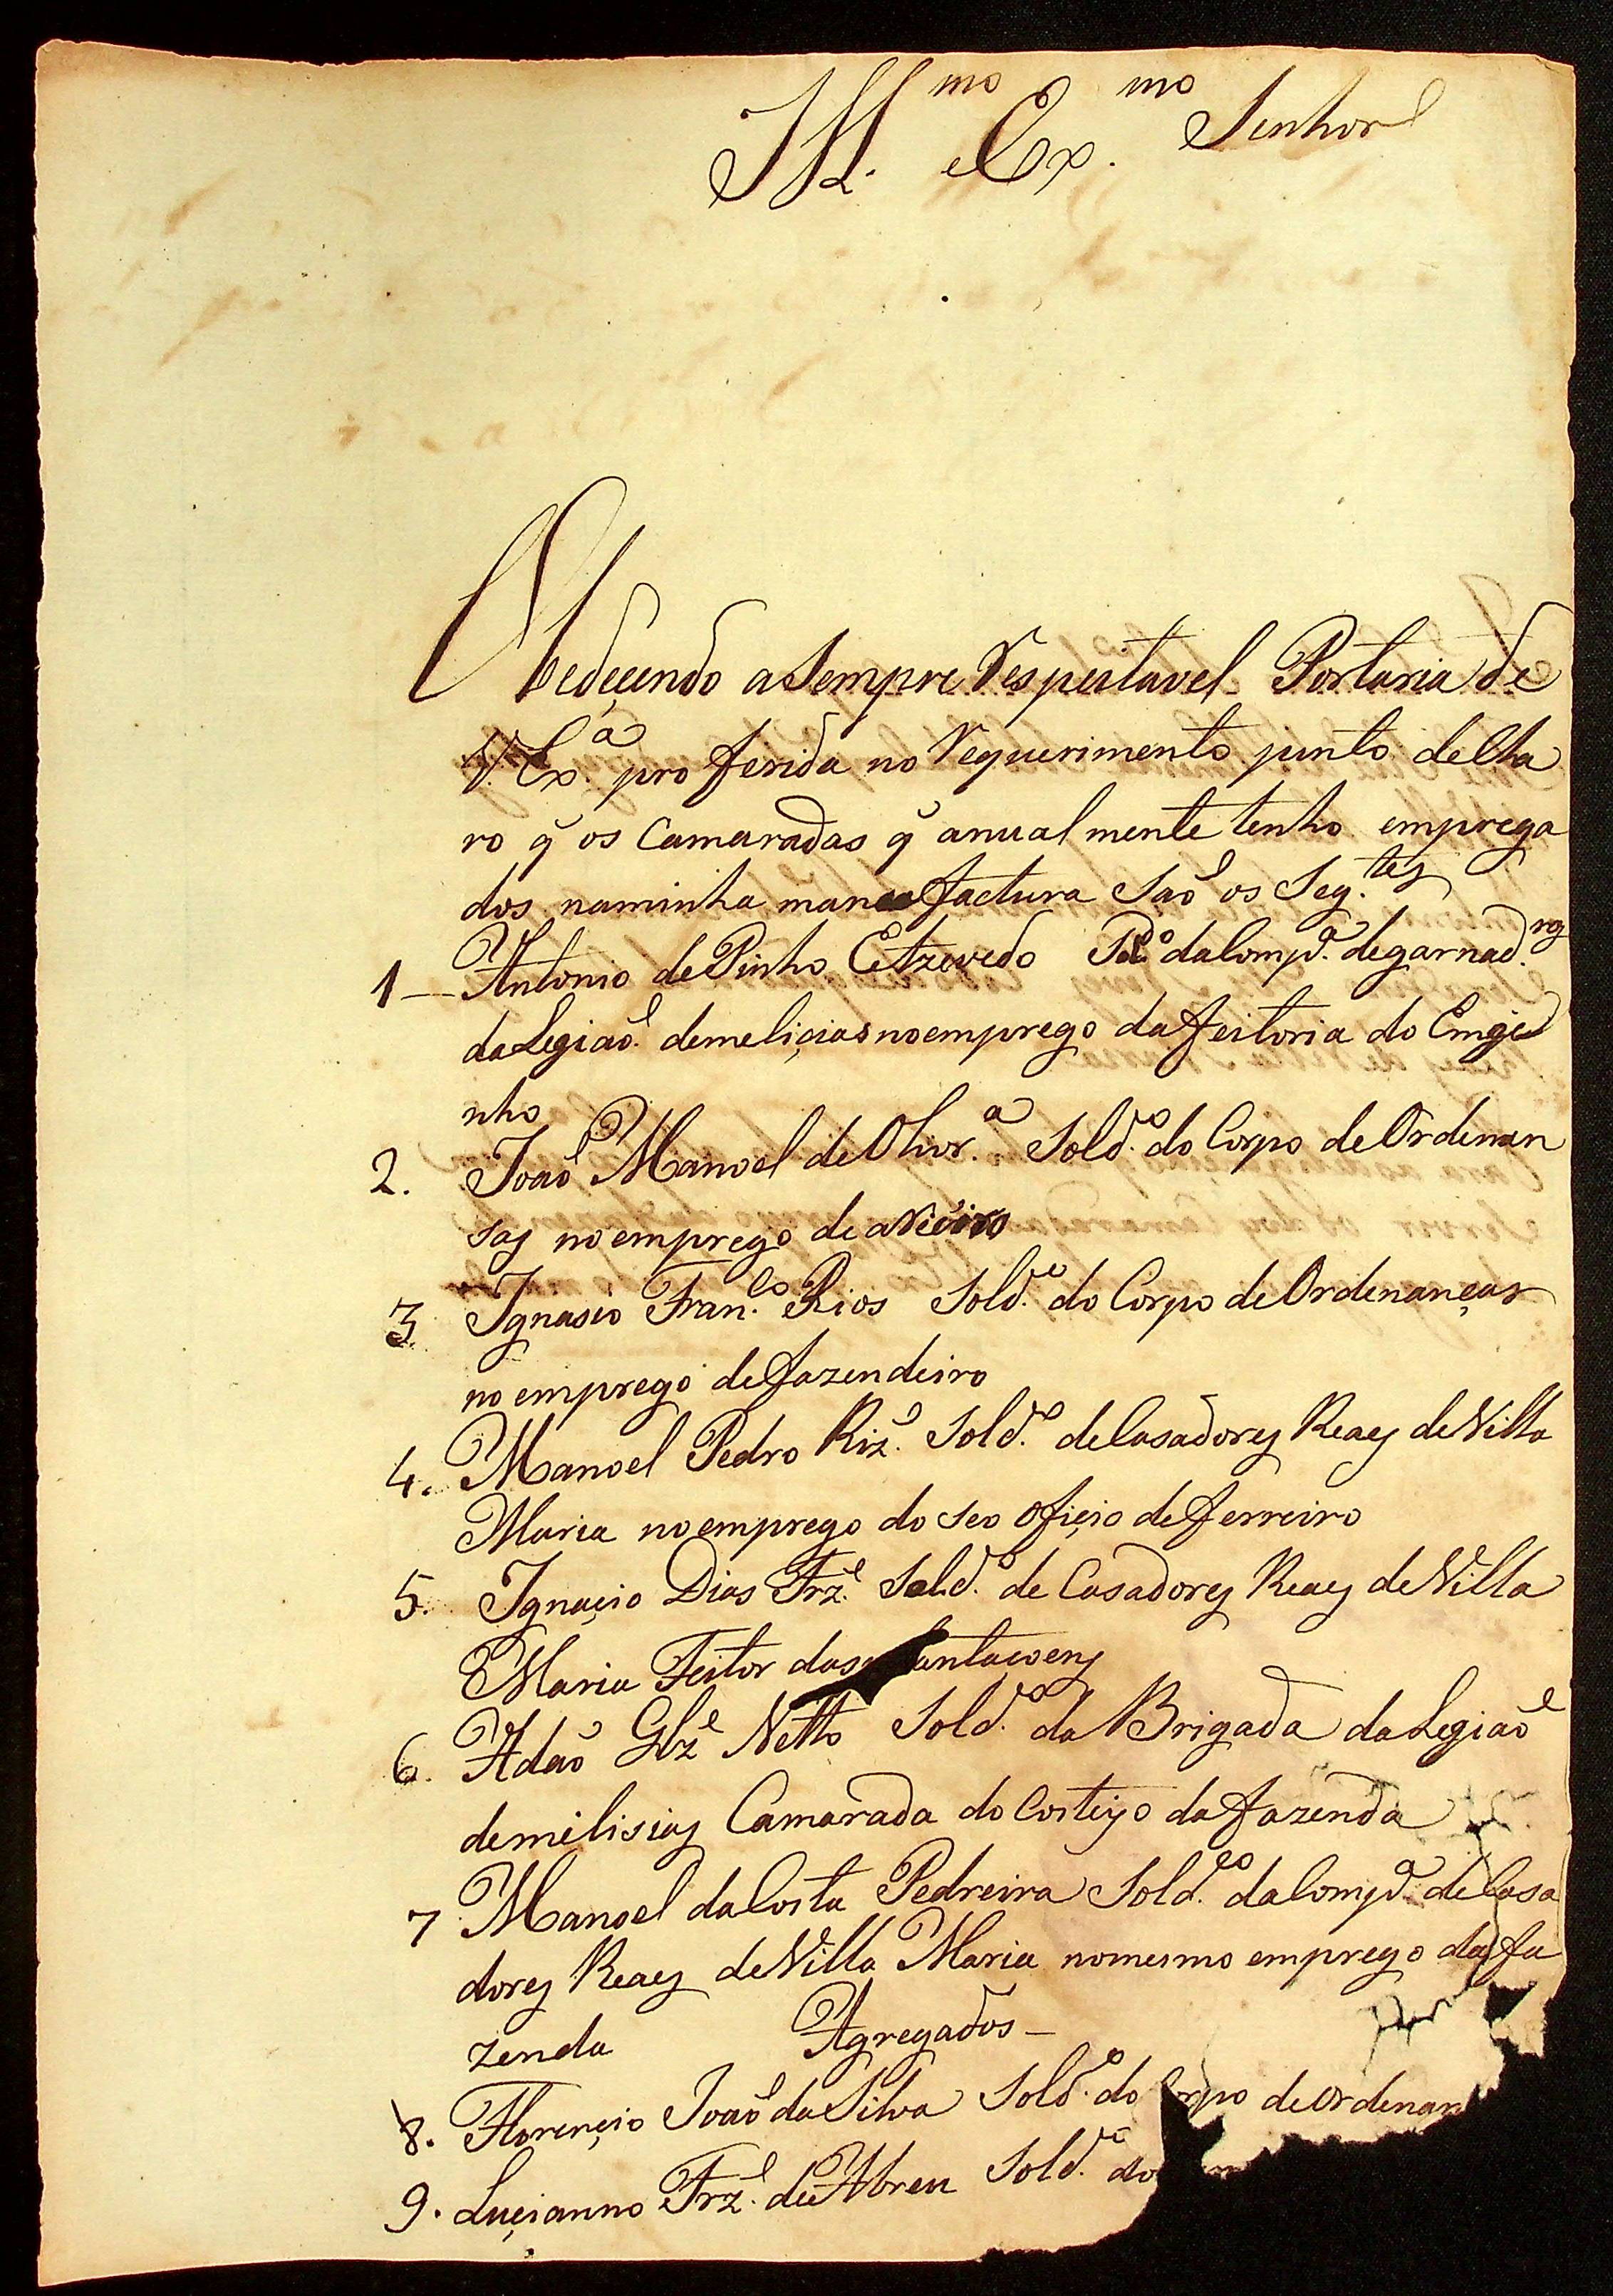 Ill.mo Ex.mo Senhor
Obedecendo a Sempre Respeitavel Portaria de
V. Ex.a proferida no Requerimento junto decla
ro q̃ os Camaradas q̃ anualmente tenho emprega
dos naminha manufactura Saõ os Seg.tes
1 — Antonio de Pinho e Azevedo Sd.o da Comp.a de garnad.ros
da Legiaõ de meliçias no emprego da feitoria do Emge
nho
2. Joaõ Manoel de Olivr.a Sold.o do Corpo de Ordenan
sas no emprego de
3 Ignasio Fran.co Rios Sold.o do Corpo de Ordenanças
no emprego de fazendeiro
4. Manoel Pedro Riz.o Sold.o de Casadores Reaes de Villa
Maria no emprego do seo ofiçio de ferreiro
5. Ignaçio Dias Frz.e Sold.o de Casadores Reaes de Villa
Maria Feitor das plantacoens
6. Adaõ Glz.e Netto Sold.o da Brigada da Legiaõ
de milisias Camarada do Costeyo da fazenda
7 Manoel da Costa Pedreira Sold.o da Comp.a de Casa
dores Reaes de Villa Maria no mesmo emprego da fa
zenda Agregados —
8. Florençio Joaõ da Silva Sold.o do Corpo de Ordenan
9. Luçianno Frz.e de Abreu Sold.o do